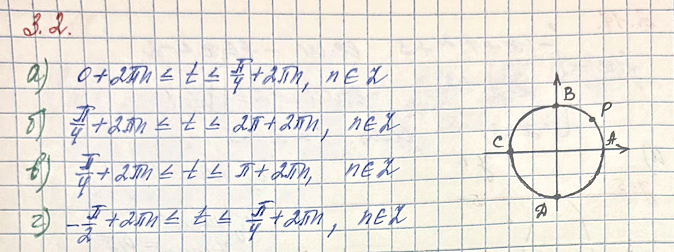 3.2.
а) 0 + 2πn ≤ t ≤ π/4 + 2πn, n ∈ Z
б) π/4 + 2πn ≤ t ≤ 2π + 2πn, n ∈ Z
в) π/4 + 2πn ≤ t ≤ π + 2πn, n ∈ Z
г) -π/2 + 2πn ≤ t ≤ π/4 + 2πn, n ∈ Z
B
P
C
A
D